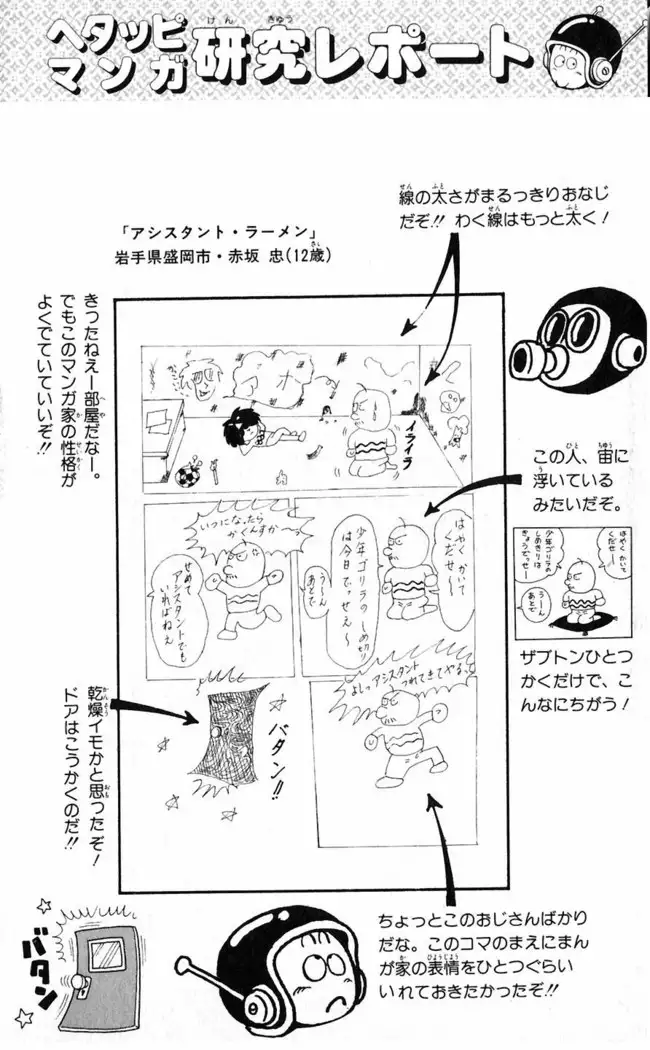 ヘタッピマンガ研究レポート
けんきゅう
「アシスタント・ラーメン」
岩手県盛岡市・赤坂 忠(12歳)
さい
線の太さがまるっきりおなじ
だぞ!! わく線はもっと太く!
せん ふと
きったねえー部屋だなー。
でもこのマンガ家の性格が
よくでていていいぞ!!
へや
か せいかく
アホ
イライラ
この人、宙に
浮いている
みたいだぞ。
ひと ちゅう
う
はやくかいて
くだせ〜
少年ゴリラのしめ切り
は今日でっせえ〜
うーん
あとで
いつになったら
かくんすか〜っ
せめて
アシスタントでも
いればねえ
はやくかいて
くだせー
少年ゴリラの
しめきりは
きょうでっせー
うーん
あとで
ザブトンひとつ
かくだけで、こ
んなにちがう!
よしっアシスタント
つれてきてやるっ
バタン!!
乾燥イモかと思ったぞ!
ドアはこうかくのだ!!
かんそう おも
バタン
ちょっとこのおじさんばかり
だな。このコマのまえにまん
が家の表情をひとつぐらい
いれておきたかったぞ!!
か ひょうじょう